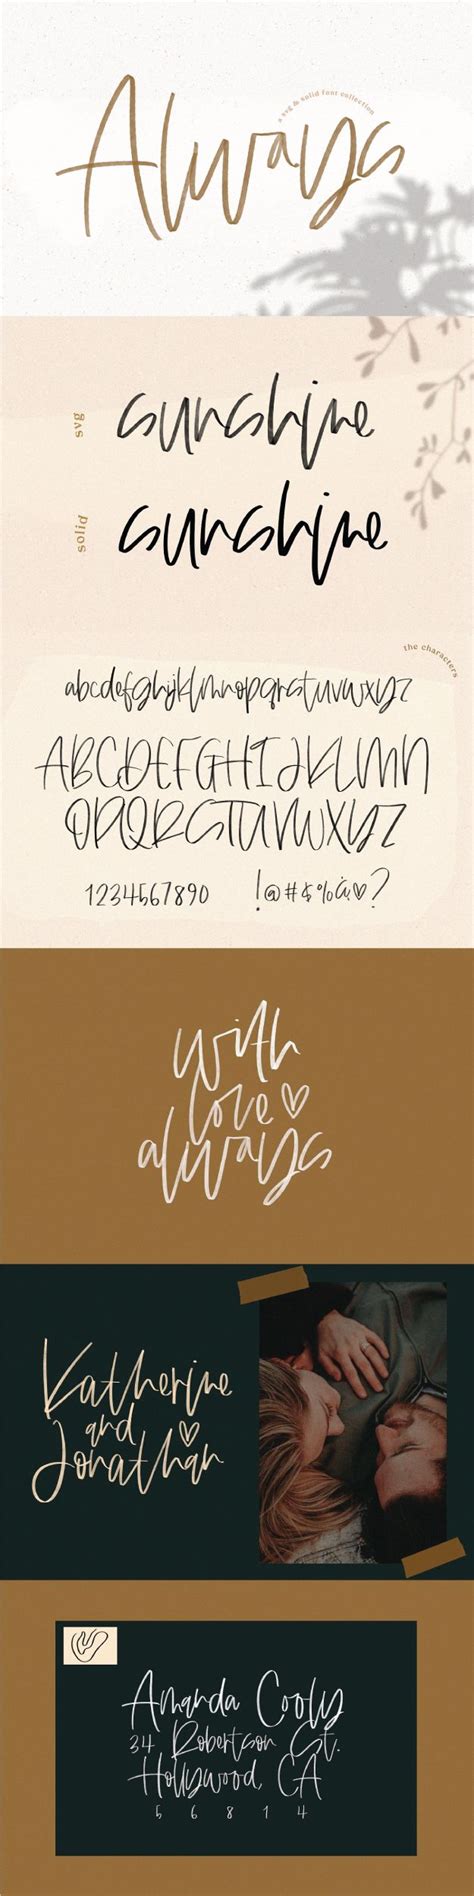 Always
a svg & solid font collection
svg
sunshine
solid
sunshine
the characters
abcdefghijklmnopqrstuvwxyz
ABCDEFGHIJKLMN
OPQRSTUVWXYZ
1234567890 !@#$%&♡?
with
love ♡
always
Katherine
and ♡
Jonathan
Amanda Cooly
34 Robertson St.
Hollywood, CA
5 6 8 1 4